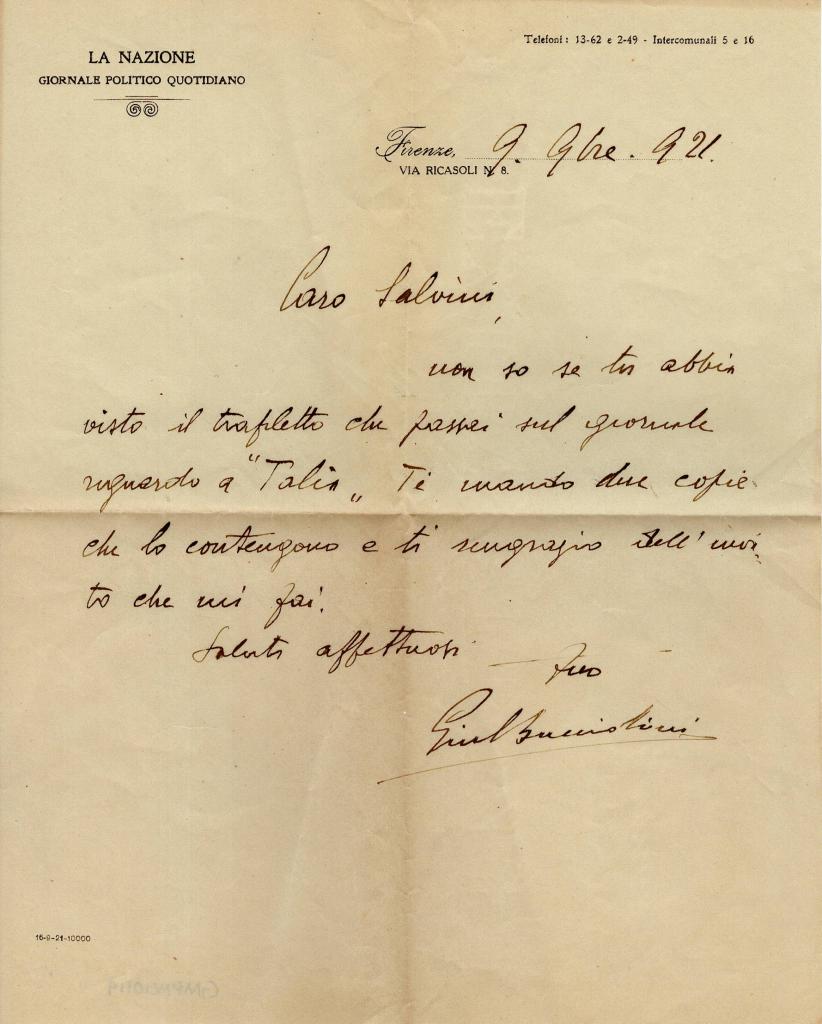 Telefoni: 13-62 e 2-49 - Intercomunali 5 e 16
LA NAZIONE
GIORNALE POLITICO QUOTIDIANO
Firenze, 9. 9bre. 921.
VIA RICASOLI N. 8.
Caro Salvini,
non so se tu abbia
visto il trafiletto che passai sul giornale
riguardo a "Talia" Ti mando due copie
che lo contengono e ti ringrazio dell'invi-
to che mi fai.
Saluti affettuosi — tuo —
Giul Bucciolini
16-9-21-10000